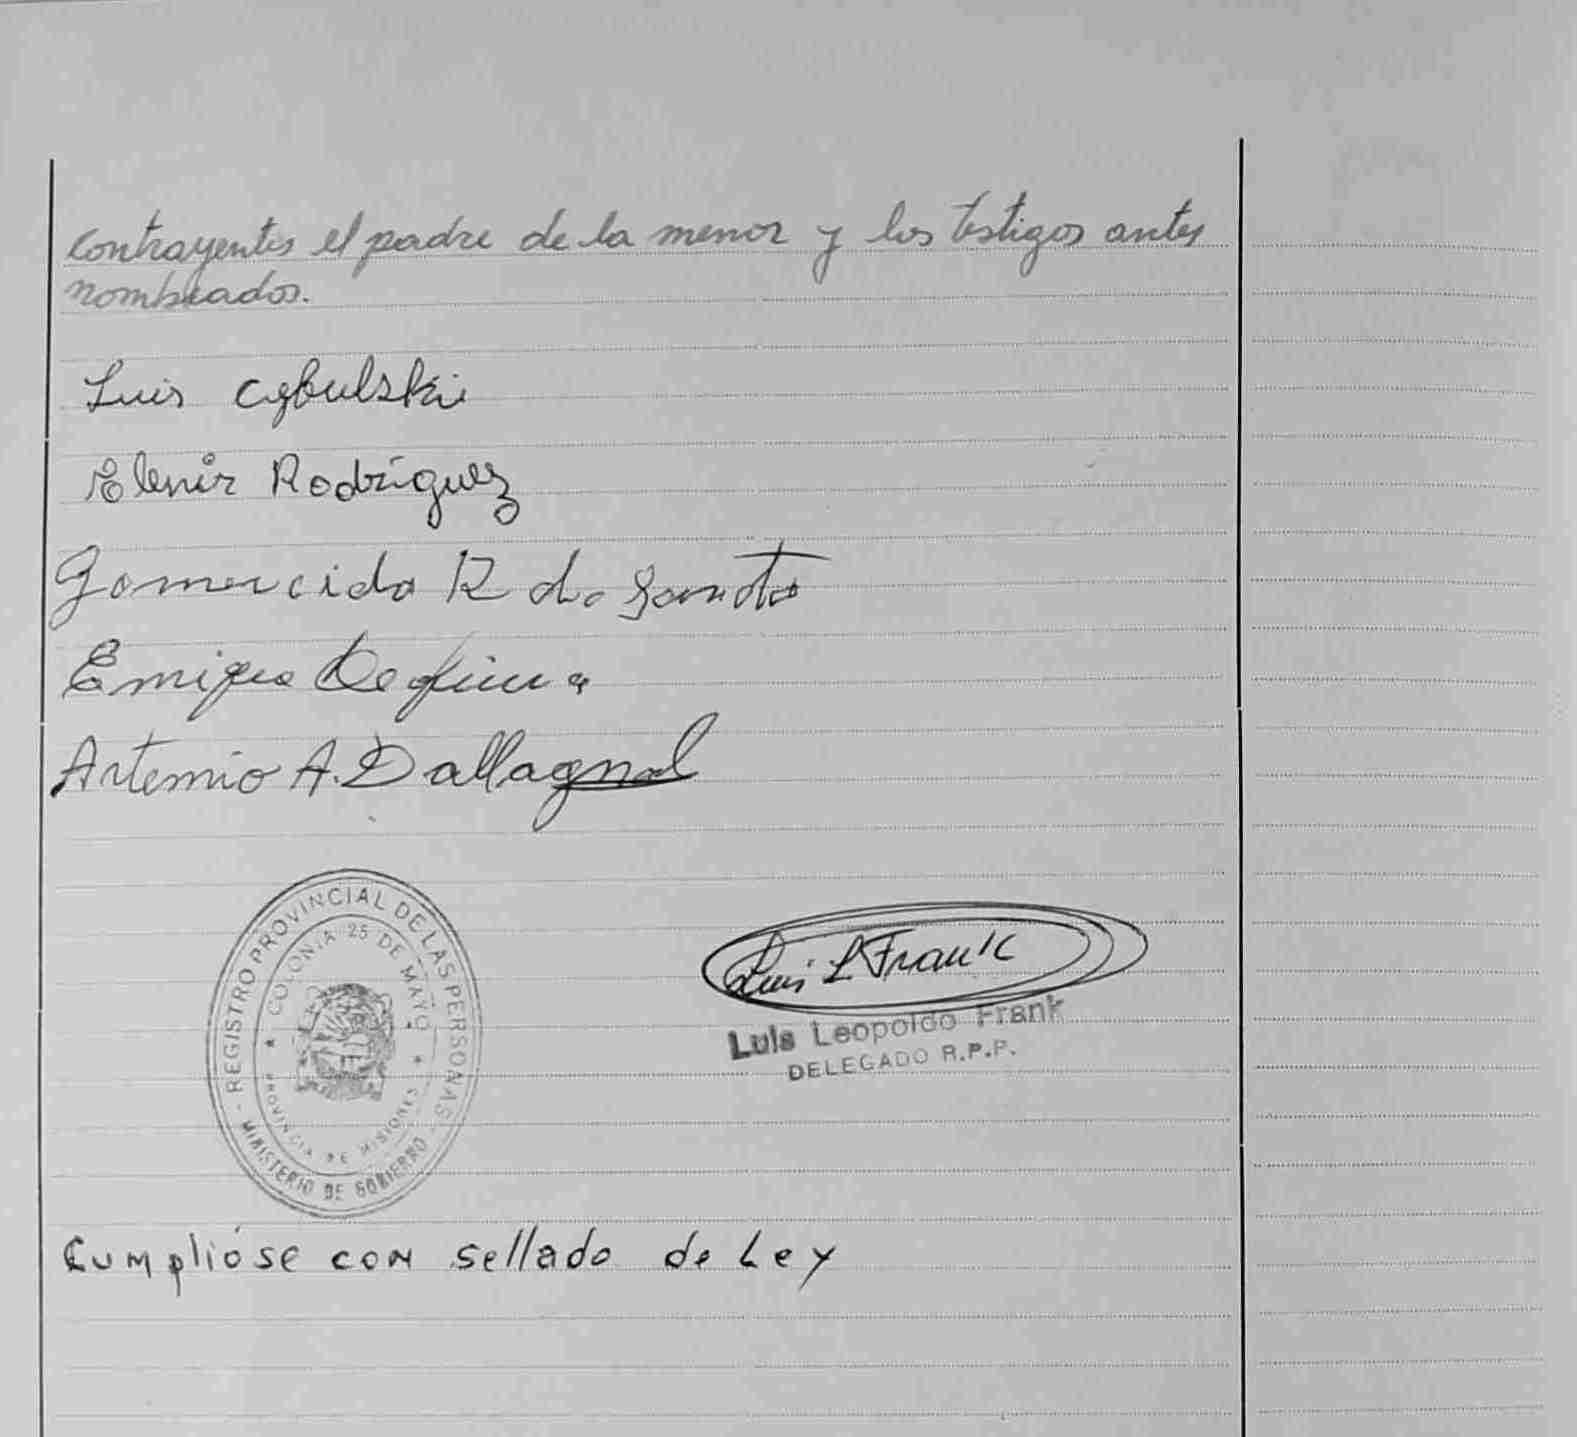 contrayentes el padre de la menor y los testigos antes
nombrados.
Luis Cybulski
Elenir Rodríguez
Gomercido R do Santo
Artemio A. Dallagnol
REGISTRO PROVINCIAL DE LAS PERSONAS
COLONIA 25 DE MAYO
PROVINCIA DE MISIONES
MINISTERIO DE GOBIERNO
Luis L Frank
Luis Leopoldo Frank
DELEGADO R.P.P.
Cumplióse con sellado de Ley